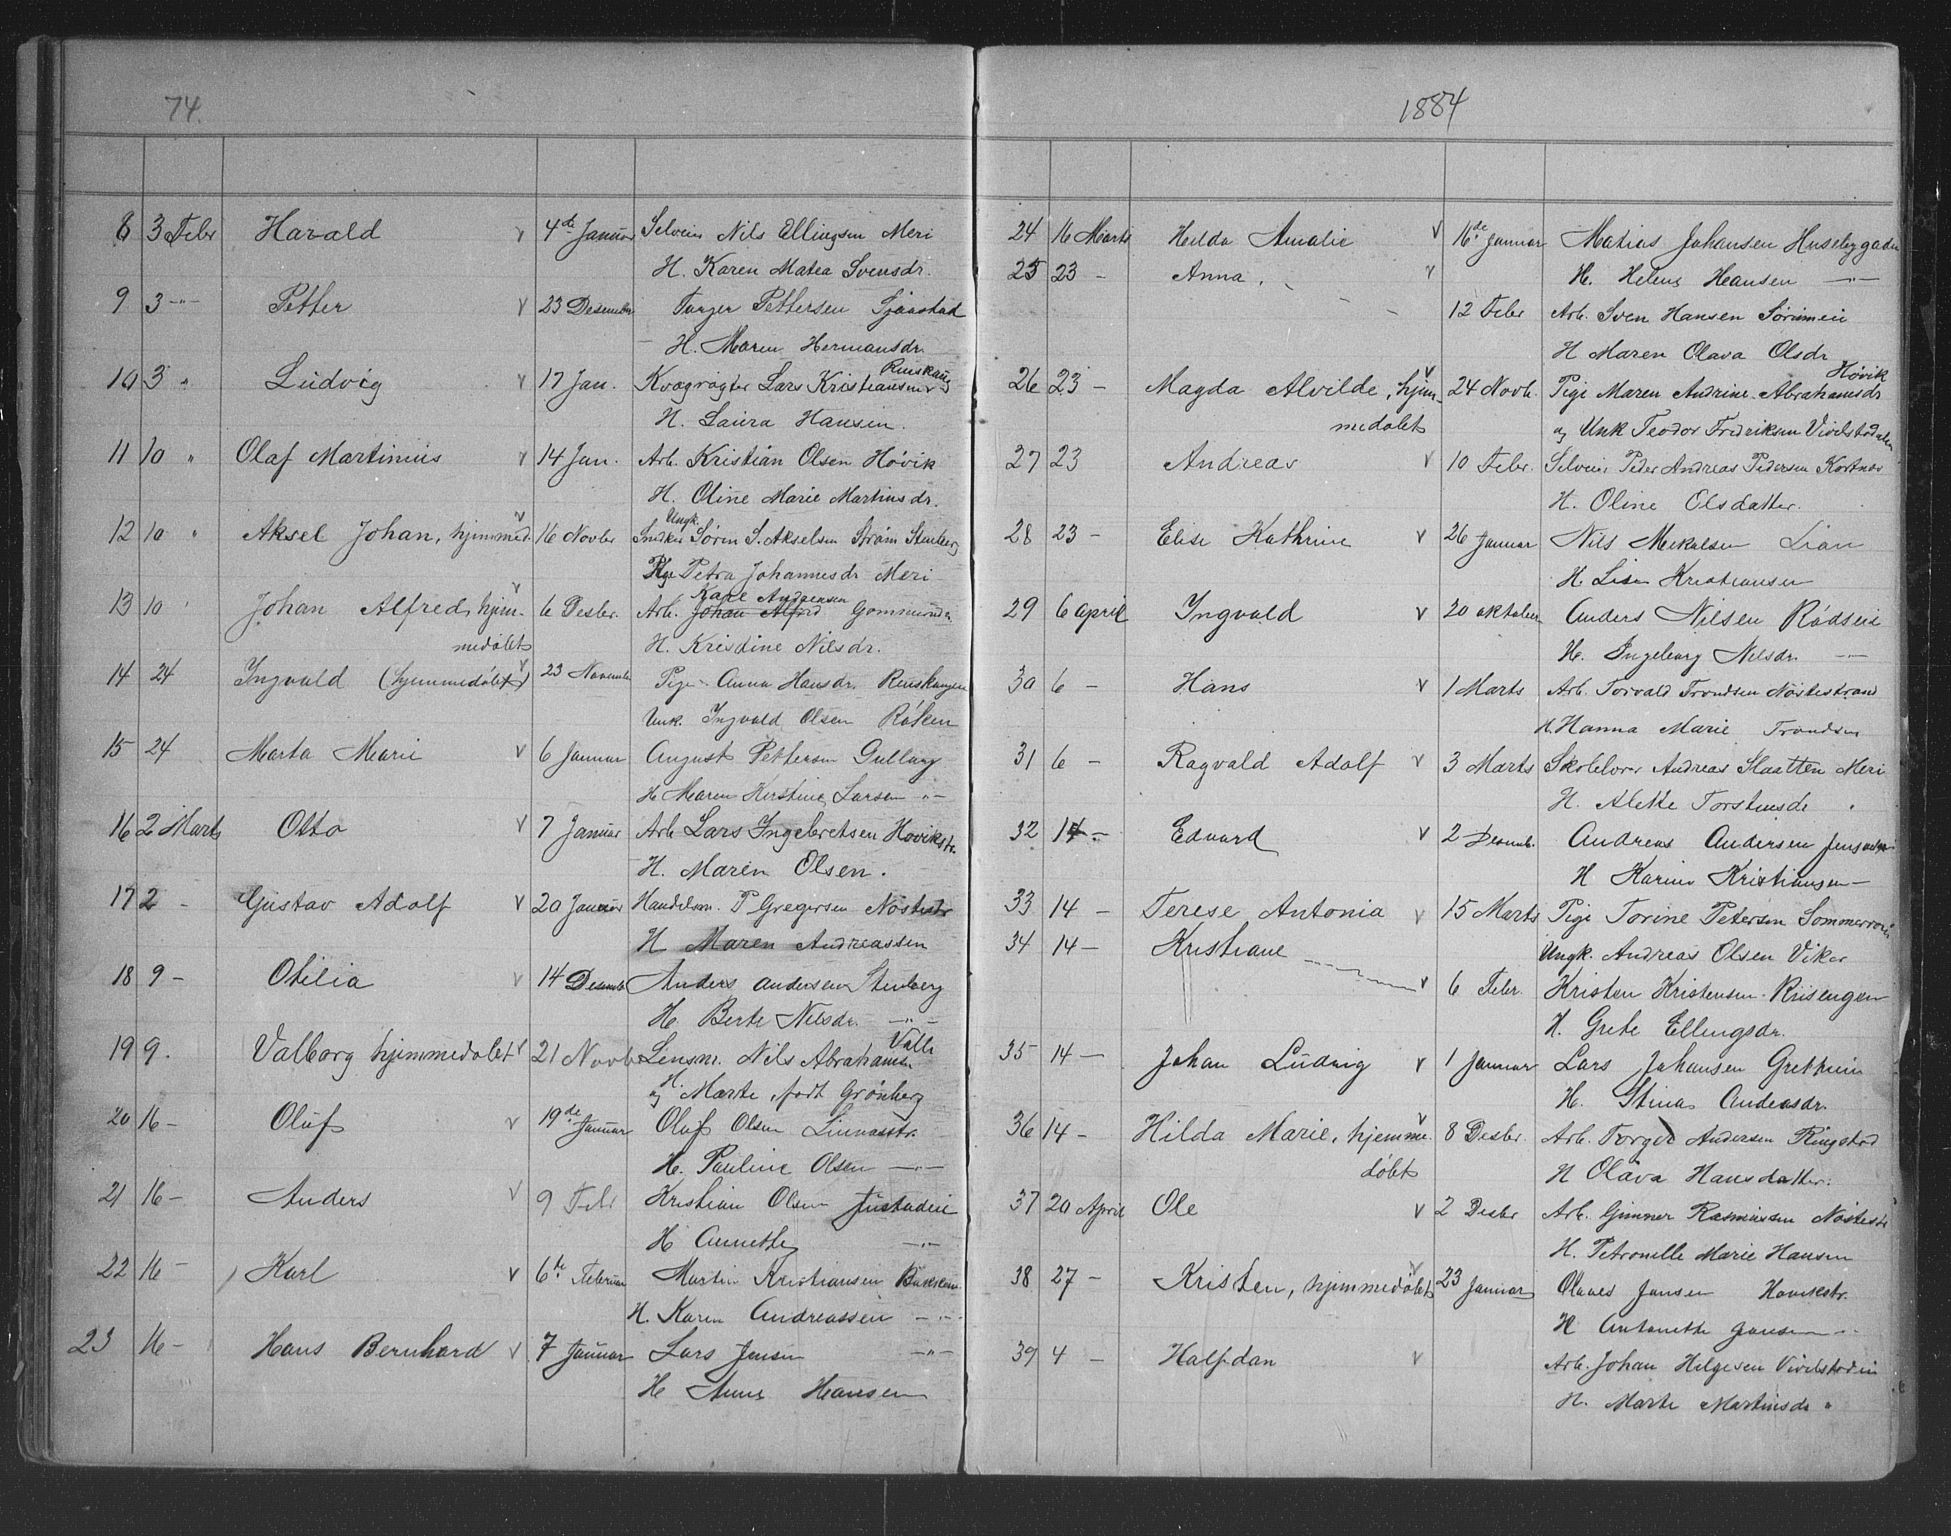 74.
8 3 Febr Harald v 4de Januar Selveier Nils Ellingsen Meri
H. Karen Matea Svensdr.
9 3 -"- Petter v 23 Desember Torger Pettersen Sjaastad
H. Maren Hermansdr.
10 3 " Ludvig v 17 Jan. Kvægrøgter Lars Kristiansen Rinskaug
H. Laura Hansen.
11 10 " Olaf Martinius v 14 Jan. Arb. Kristian Olsen Høvik
H. Oline Marie Martinsdr.
12 10 " Aksel Johan, hjemmed. v 16 Novbr Ungk. Snedker Søren S. Akselsen Strøm Stenberg
Pige Petra Johannesdr Meri
13 10 " Johan Alfred, hjem- v 6 Desbr. Arb. Johan Alfred Kare Andreasen
medøbt H. Kristine Nilsdr.
14 24 Ingvald (hjemmedøbt) v 23 November Pige Anna Hansdr. Rinskaugen
Unk. Ingvald Olsen Røken
15 24 Marta Marie v 6 Januar August Pettersen Gullaug
H. Maren Kirstine Larsen -"-
16 2 Marts Otto v 7 Januar Arb Lars Ingebretsen Hovikstr.
H. Maren Olsen.
17 2 - Gustav Adolf v 20 Januar Handelsm. P Gregersen Nøstestr
H Maren Andreassen
18 9 - Otilia v 14 Desemb Anders Andersen Stenberg
H. Berte Nilsdr. -"-
19 9. Valborg hjemmedøbt v 21 Novbr Lensm. Nils Abrahamsen Valle
og H. Marte, født Grønberg
20 16 - Oluf v 19de Januar Oluf Olsen Linnesstr.
H. Pauline Olsen -"-
21 16 - Anders v 9 Febr Kristian Olsen Justadeie
H Annette -"-
22 16 - Karl v 6te Februar Martin Kristiansen
H. Karen Andreassen -"-
23 16 - Hans Bernhard v 7 Januar Lars Jensen -"-
H Anne Hansen
1884
24 16 Marts Hilda Amalie v 16de Januar Matias Johansen Husebygaden
25 23 - Anna. v H. Helene Hansen -"-
12 Febr Arb. Sven Hansen
H Maren Olava Olsdr
26 23 - Magda Alvilde, hjem- v 24 Novb. Pige Maren Andrine Abrahamsdr Høvik
medøbt og Unk Teodor Fredriksen Vivelstadalen
27 23 Andreas v 10 Febr. Selveier Peder Andreas Pedersen Kortnes
H. Oline Olsdatter.
28 23 - Elise Kathrine v 26 Januar Nils Mekalsen Lian
H Lise Kristiansen
29 6 april Ingvald v 20 oktober Anders Nilsen Rødseie
H. Ingeborg Nilsdr. -"-
30 6 - Hans v 1 Marts Arb. Torvald Trondsen Nøstestrand
H. Hanna Marie Trondsen
31 6 - Ragvald Adolf v 3 Marts Skolelærer Andreas Slaatten Meri
H. Alette Torstensdr "
32 14 - Edvard v 2 Desemb. Andreas Andersen
H Karine Kristiansen -
33 14 - Terese Antonia v 15 Marts Pige Torine Petersen
34 14 - Kristiane Ungk. Andreas Olsen Viker
v 6 Febr. Kristen Kristensen Risengen
H. Grete Ellingsdr.
35 14 - Johan Ludvig v 1 Januar Lars Johansen
H. Stina Andersdr.
36 14 - Hilda Marie, hjemme- v 8 Desbr. Arb. Torger Andersen Ringstad
døbt H Olava Hansdatter.
37 20 April Ole v 2 Desbr Arb. Gunner Rasmusen Nøstestr
H. Petronelle Marie Hansen
38 27 - Kristen, hjemmedøbt v 23 Januar Olaves Jansen Hovikstr.
H Antonette Jansen -"-
39 4 - Halfdan v Arb. Johan Helgesen Vivelstadeie
H. Marte Martinsdr "